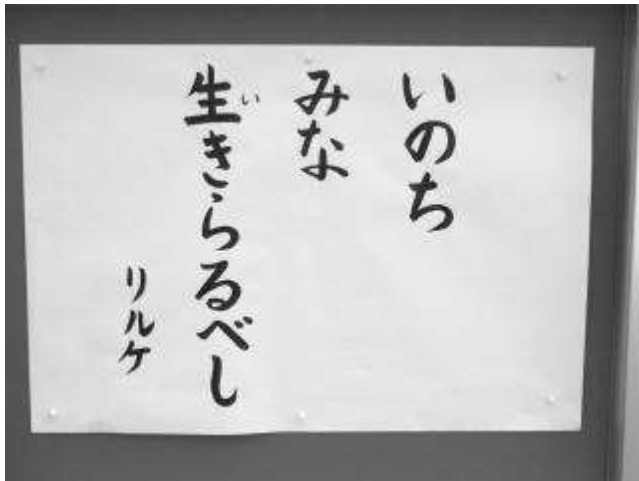 いのち
みな
生きらるべし
い
リルケ